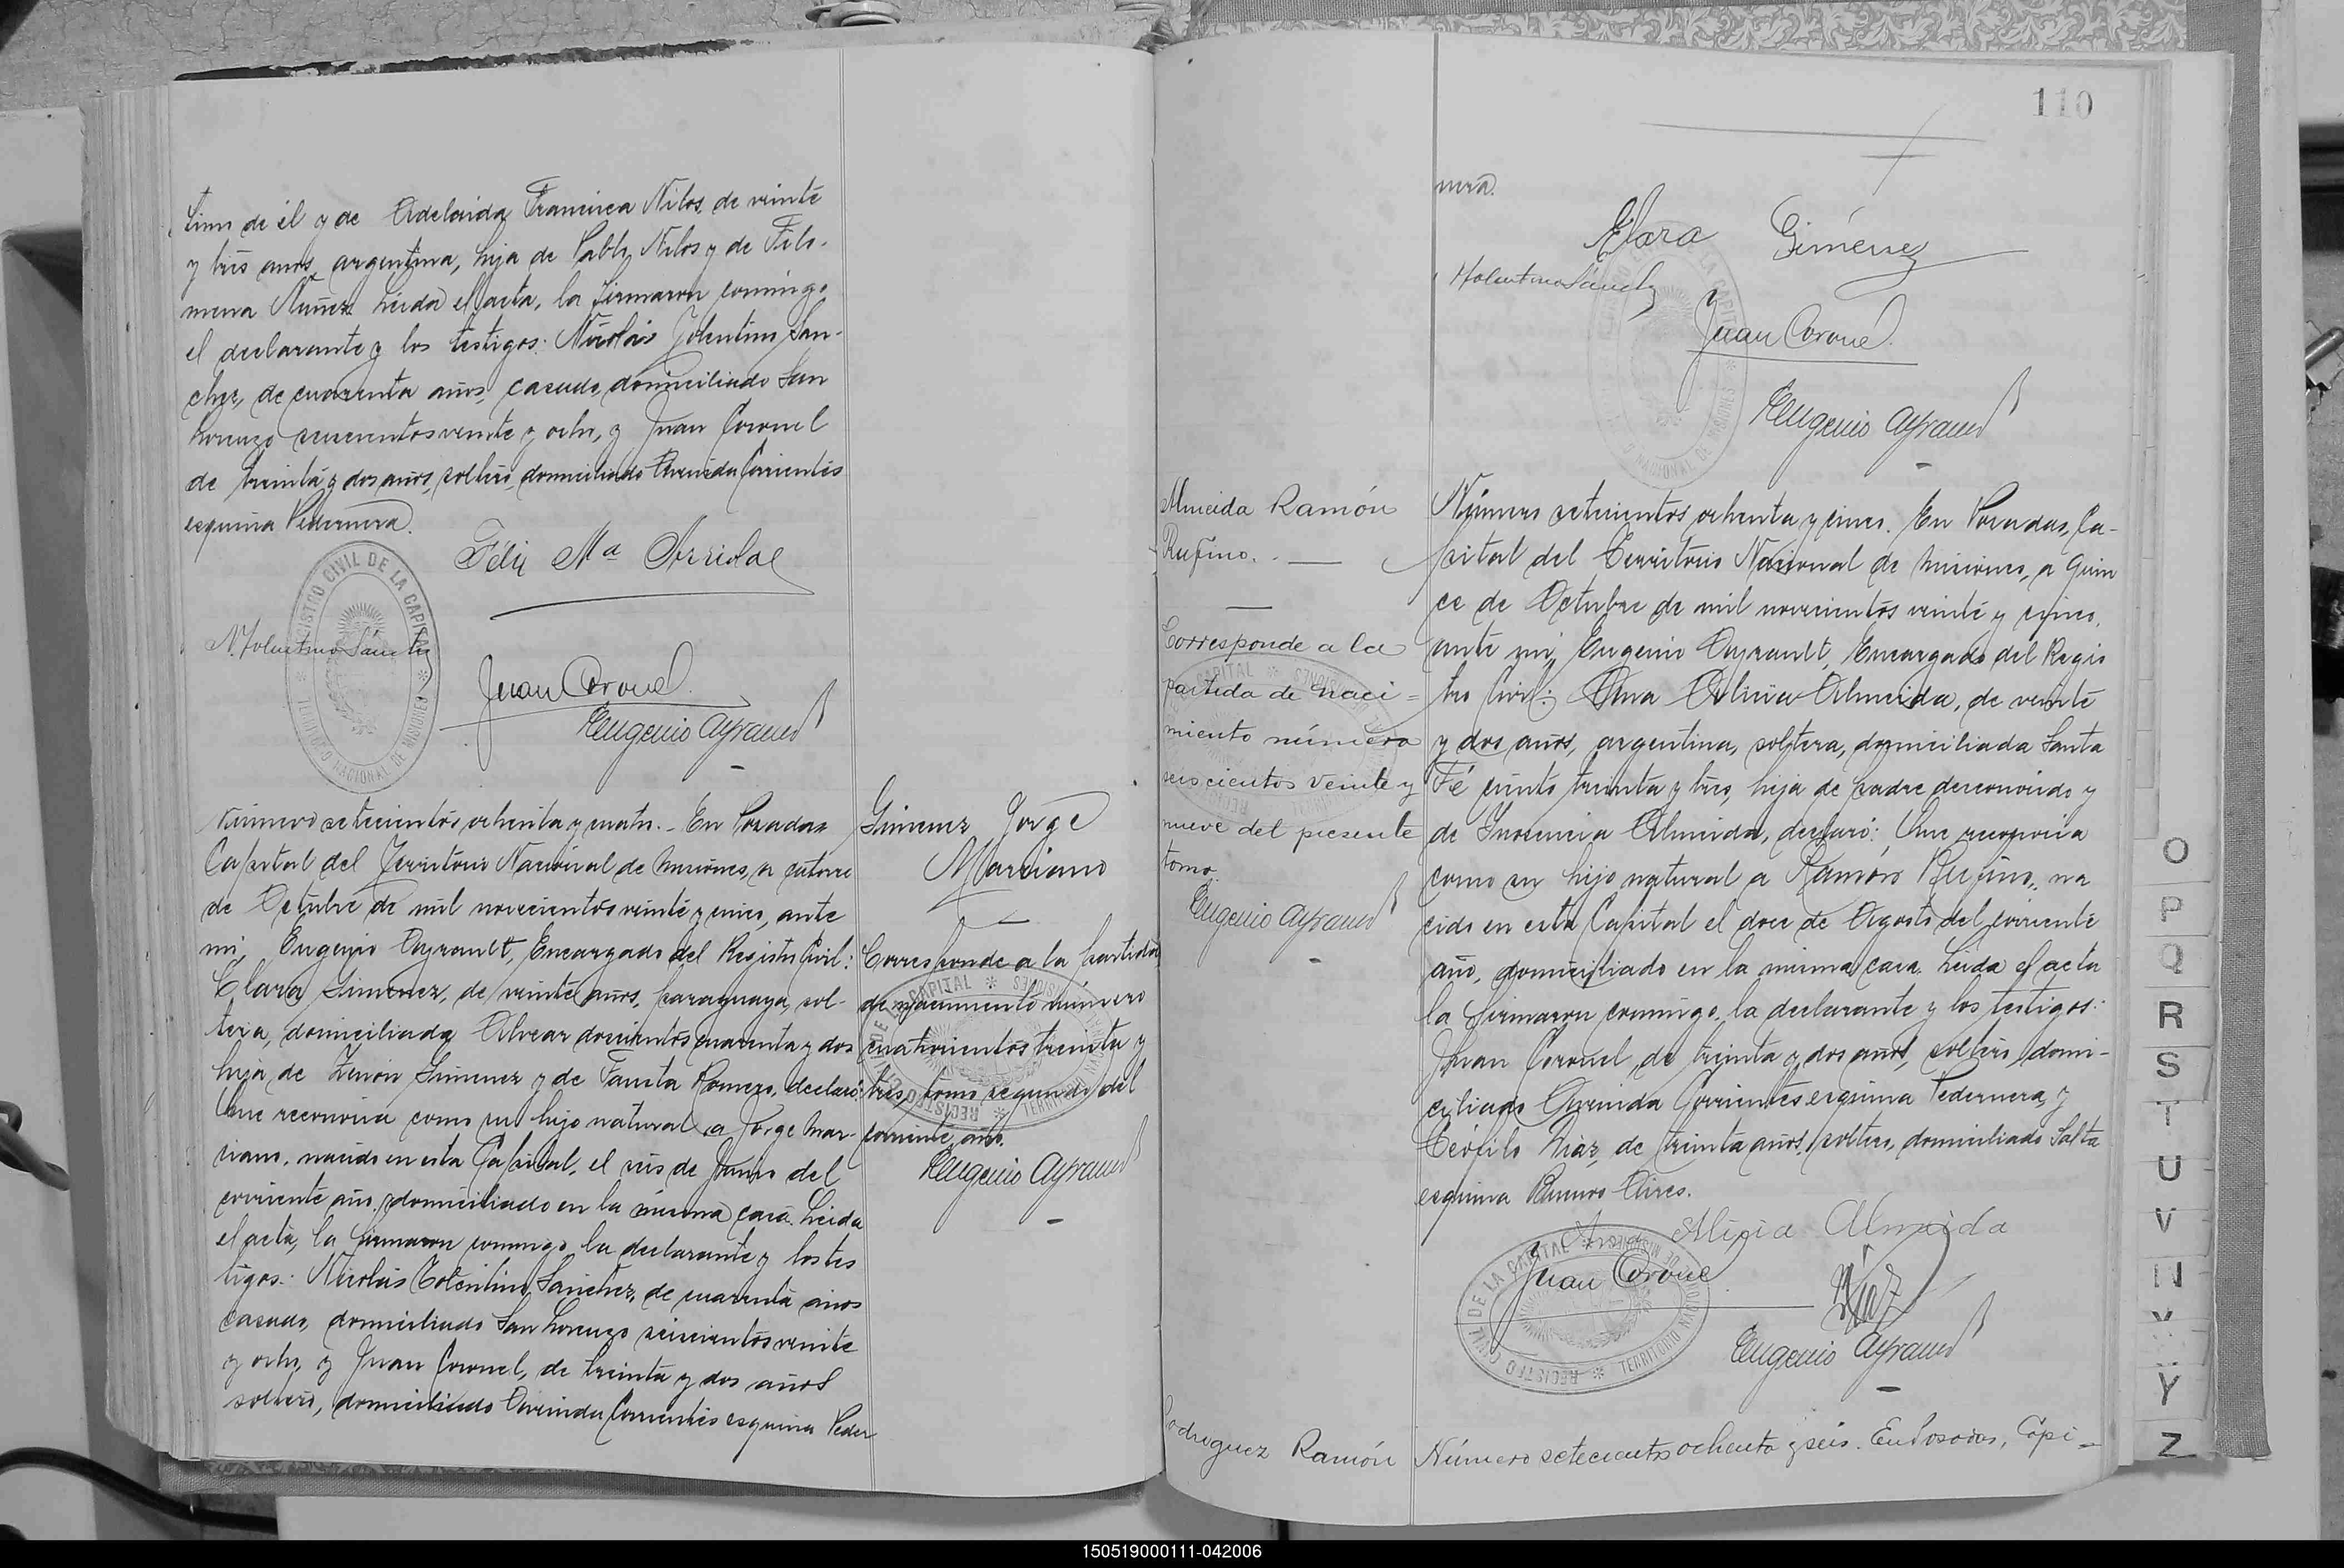 timo de él y de Adelaida Francisca Nilos, de veinte
y tres años, argentina, hija de Pablo Nilos y de Filo-
mena Nuñez. Leida el acta, la firmaron conmigo
el declarante y los testigos: Nicolás Tolentino San-
chez, de cuarenta años, casado, domiciliado San
Lorenzo seiscientos veinte y ocho, y Juan Coronel
de treinta y dos años, soltero, domiciliado Avenida Corrientes
esquina Pedernera.
Félix Ma Arriolae
N. Tolentino Sánchez
Juan Coronel
Eugenio Ayrault
REGISTRO CIVIL DE LA CAPITAL
TERRITORIO NACIONAL DE MISIONES
Número setecientos ochenta y cuatro. - En Posadas
Capital del Territorio Nacional de Misiones, a catorce
de Octubre de mil novecientos veinte y cinco, ante
mi, Eugenio Ayrault, Encargado del Registro Civil:
Clara Gimenez, de veinte años, paraguaya, sol-
tera, domiciliada Alvear doscientos cuarenta y dos
hija de Zenón Gimenez y de Romero, declaró:
Que reconocia como su hijo natural a Jorge Mar-
ciano, nacido en esta Capital, el seis de Junio del
corriente año, domiciliado en la misma casa. Leida
el acta, la firmaron conmigo, la declarante y los tes
tigos: Nicolás Tolentino Sanchez, de cuarenta años
casado, domiciliado San Lorenzo seiscientos veinte
y ocho, y Juan Coronel, de treinta y dos años
soltero, domiciliado Avenida Corrientes esquina Peder
Gimenez Jorge
Marciano
Corresponde a la partida
de nacimiento número
cuatrocientos treinta y
tres, tomo segundo del
corriente año.
Eugenio Ayrault
110
nera.
Clara Giménez
N Tolentino Sánchez
Juan Coronel
Eugenio Ayrault
Almeida Ramón
Rufino.
Corresponde a la
partida de naci=
miento número
seiscientos veinte y
nueve del presente
tomo.
Eugenio Ayrault
Número setecientos ochenta y cinco. En Posadas, Ca-
pital del Territorio Nacional de Misiones, a quin
ce de Octubre de mil novecientos veinte y cinco,
ante mi, Eugenio Ayrault, Encargado del Regis
tro Civil: Ana Alicia Almeida, de veinte
y dos años, argentina, soltera, domiciliada Santa
Fé ciento treinta y tres, hija de padre desconocido y
de Inocencia Almeida, declaró: Que reconocia
como su hijo natural a Ramón Rufino, na
cido en esta Capital el doce de Agosto del corriente
año, domiciliado en la misma casa. Leida el acta
la firmaron conmigo, la declarante y los testigos:
Juan Coronel, de treinta y dos años, soltero, domi-
ciliado Avenida Corrientes esquina Pedernera, y
Teófilo Diaz, de treinta años, soltero, domiciliado Salta
esquina Buenos Aires.
Alicia Almeida
Juan Coronel
Diaz
Eugenio Ayrault
REGISTRO CIVIL DE LA CAPITAL
TERRITORIO NACIONAL DE MISIONES
Rodriguez Ramón
Número setecientos ochenta y seis. En Posadas, Capi=
O
P
Q
R
S
T
U
V
Y
Z
150519000111-042006